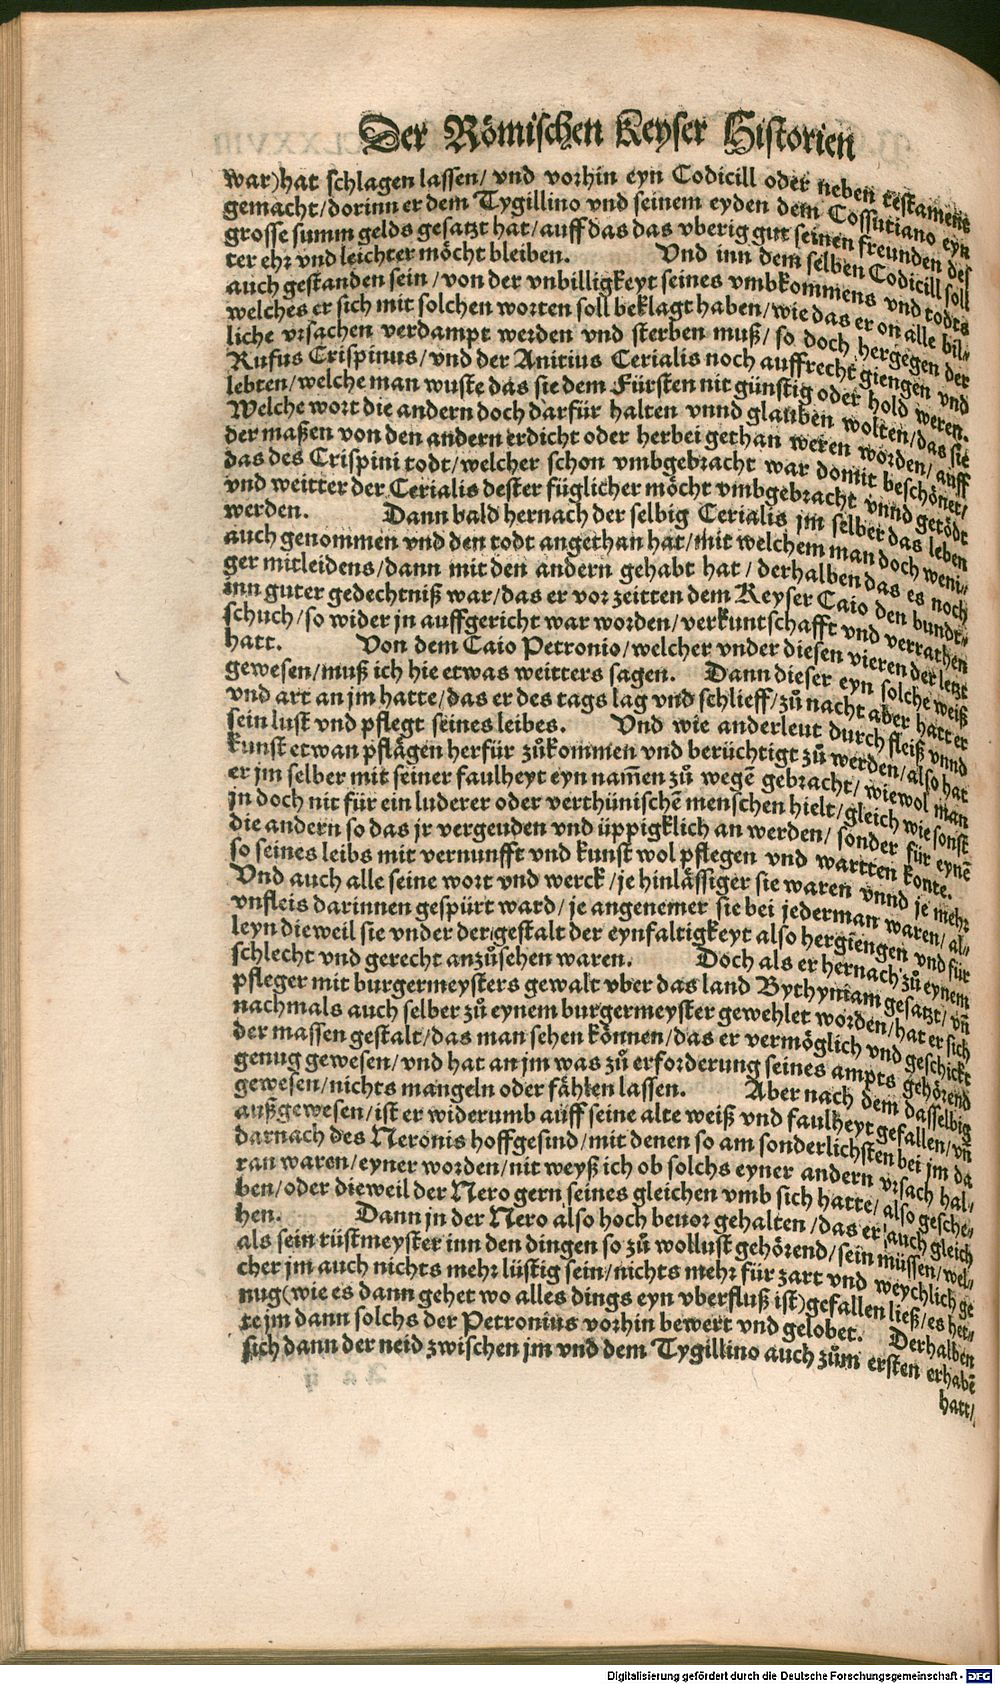 Der Römischen Keyser Historien
war)hat schlagen lassen/ vnd vorhin eyn Codicill oder neben testament
gemacht/dorinn er dem Tygillino vnd seinem eyden dem Cossutiano eyn
grosse summ gelds gesatzt hat/auff das das vberig gut seinen freunden des
ter ehr vnd leichter möcht bleiben. Vnd inn dem selben Codicill soll
auch gestanden sein/von der vnbilligkeyt seines vmbkommens vnd todts
welches er sich mit solchen worten soll beklagt haben/wie das er on alle bil⸗
liche vrsachen verdampt werden vnd sterben muß/ so doch hergegen der
Rufus Crispinus/vnd der Anitius Cerialis noch auffrecht giengen vnd
lebten/welche man wuste das sie dem Fürsten nit günstig oder hold weren.
Welche wort die andern doch darfür halten vnnd glauben wolten/das sie
der maßen von den andern erdicht oder herbei gethan weren worden/ auff
das des Crispini todt/welcher schon vmbgebracht war domit beschönet/
vnd weitter der Cerialis dester füglicher möcht vmbgebracht vnnd getödt
werden. Dann bald hernach der selbig Cerialis jm selber das leben
auch genommen vnd den todt angethan hat/mit welchem man doch weni⸗
ger mitleidens/dann mit den andern gehabt hat/ derhalben das es noch
inn guter gedechtniß war/das er vor zeitten dem Keyser Caio den bundt⸗
schuch/so wider jn auffgericht war worden/verkuntschafft vnd verrathen
hatt. Von dem Caio Petronio/welcher vnder diesen vieren der letzt
gewesen/muß ich hie etwas weitters sagen. Dann dieser eyn solche weiß
vnd art an jm hatte/das er des tags lag vnd schlieff/zů nacht aber hatt er
sein lust vnd pflegt seines leibes. Vnd wie anderleut durch fleiß vnnd
kunst etwan pflägen herfür zůkommen vnd berüchtigt zů werden/also hat
er jm selber mit seiner faulheyt eyn nam̃en zů wegẽ gebracht/ wiewol man
jn doch nit für ein luderer oder verthünischẽ menschen hielt/gleich wie sonst
die andern so das jr vergeuden vnd üppigklich an werden/ sonder für eynẽ
so seines leibs mit vernunfft vnd kunst wol pflegen vnd wartten konte.
Vnd auch alle seine wort vnd werck/je hinlässiger sie waren vnnd je mehr
vnfleis darinnen gespürt ward/je angenemer sie bei jederman waren/ al⸗
leyn dieweil sie vnder der gestalt der eynfaltigkeyt also hergiengen vnd für
schlecht vnd gerecht anzůsehen waren. Doch als er hernach zů eynem
pfleger mit burgermeysters gewalt vber das land Bythyniam gesatzt/ vñ
nachmals auch selber zů eynem burgermeyster gewehlet worden/hat er sich
der massen gestalt/das man sehen können/das er vermöglich vnd geschickt
genug gewesen/vnd hat an jm was zů erforderung seines ampts gehörend
gewesen/nichts mangeln oder fählen lassen. Aber nach dem dasselbig
außgewesen/ist er widerumb auff seine alte weiß vnd faulheyt gefallen/vñ
darnach des Neronis hoffgesind/mit denen so am sonderlichsten bei jm da
ran waren/eyner worden/nit weyß ich ob solchs eyner andern vrsach hal⸗
ben/oder dieweil der Nero gern seines gleichen vmb sich hatte/also gesche⸗
hen. Dann jn der Nero also hoch beuor gehalten/das er auch gleich
als sein rüstmeyster inn den dingen so zů wollust gehörend/sein müssen/wel⸗
cher jm auch nichts mehr lüstig sein/nichts mehr für zart vnd weychlich ge
nug(wie es dann gehet wo alles dings eyn vberfluß ist)gefallen ließ/es het⸗
te jm dann solchs der Petronius vorhin bewert vnd gelobet. Derhalben
sich dann der neid zwischen jm vnd dem Tygillino auch zům ersten erhabẽ
hatt/
Digitalisierung gefördert durch die Deutsche Forschungsgemeinschaft - DFG